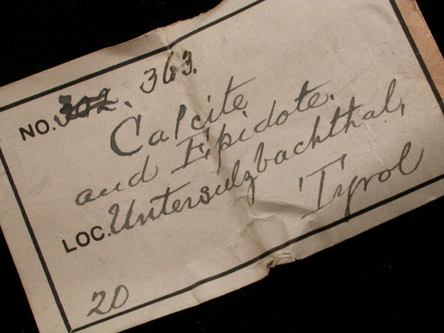 NO. 302. 363.
Calcite
and Epidote.
LOC. Untersulzbachthal,
Tyrol
20